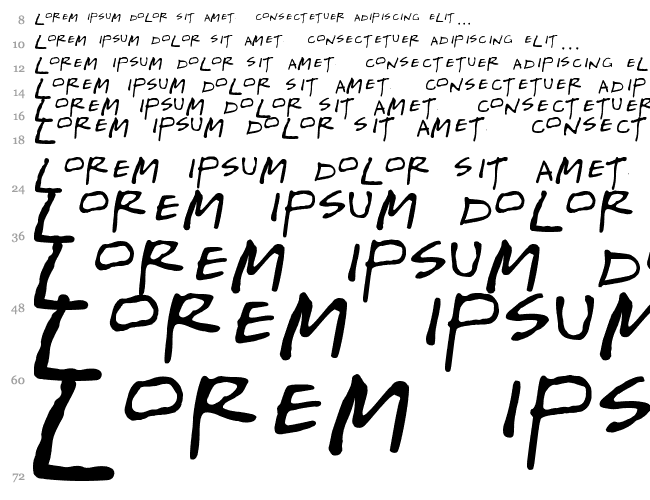 8 LOREM IPSUM DOLOR SIT AMET CONSECTETUER ADIPISCING ELIT...
10 LOREM IPSUM DOLOR SIT AMET CONSECTETUER ADIPISCING ELIT...
12 LOREM IPSUM DOLOR SIT AMET CONSECTETUER ADIPISCING EL
14 LOREM IPSUM DOLOR SIT AMET CONSECTETUER ADIP
16 LOREM IPSUM DOLOR SIT AMET CONSECTETUER
18 LOREM IPSUM DOLOR SIT AMET CONSECT
24 LOREM IPSUM DOLOR SIT AMET
36 LOREM IPSUM DOLOR
48 LOREM IPSUM D
60 LOREM IPSUM
72 LOREM IPS